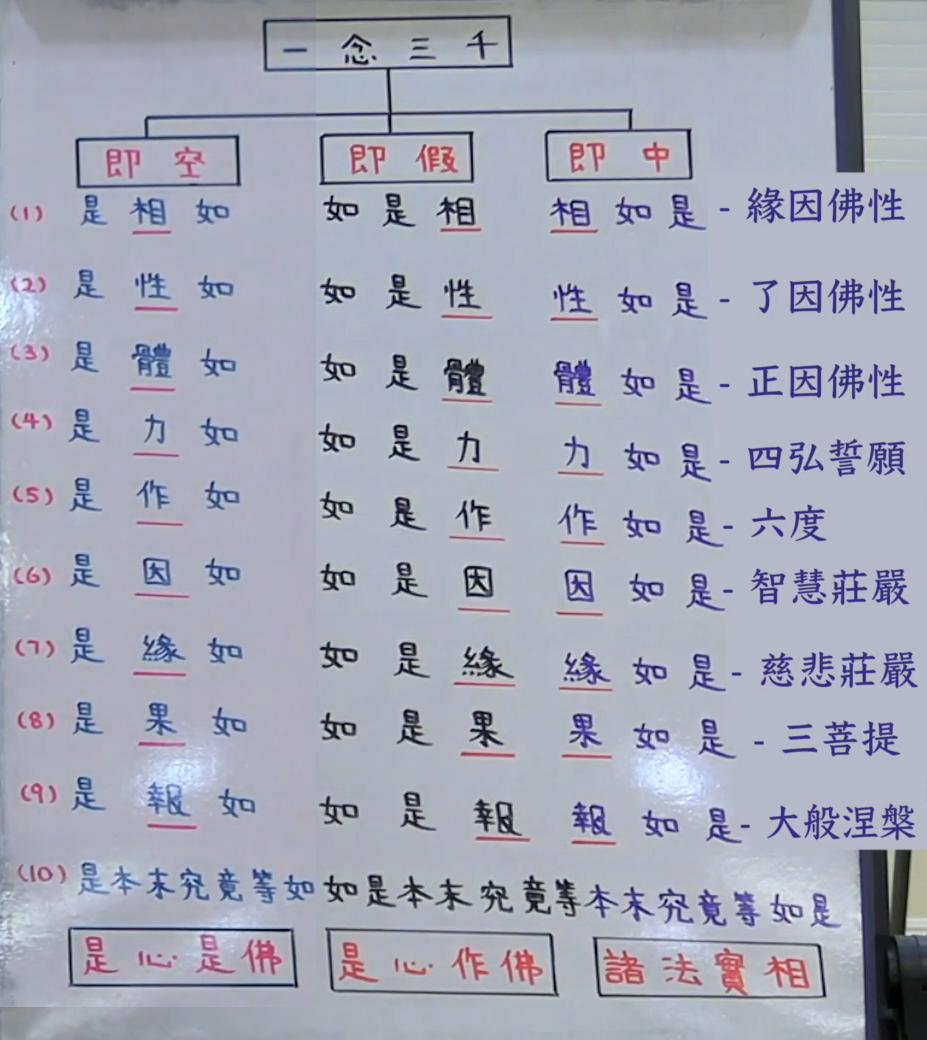 一念三千
即空 即假 即中
(1) 是相如 如是相 相如是 - 緣因佛性
(2) 是性如 如是性 性如是 - 了因佛性
(3) 是體如 如是體 體如是 - 正因佛性
(4) 是力如 如是力 力如是 - 四弘誓願
(5) 是作如 如是作 作如是 - 六度
(6) 是因如 如是因 因如是 - 智慧莊嚴
(7) 是緣如 如是緣 緣如是 - 慈悲莊嚴
(8) 是果如 如是果 果如是 - 三菩提
(9) 是報如 如是報 報如是 - 大般涅槃
(10) 是本末究竟等如 如是本末究竟等 本末究竟等如是
是心是佛 是心作佛 諸法實相